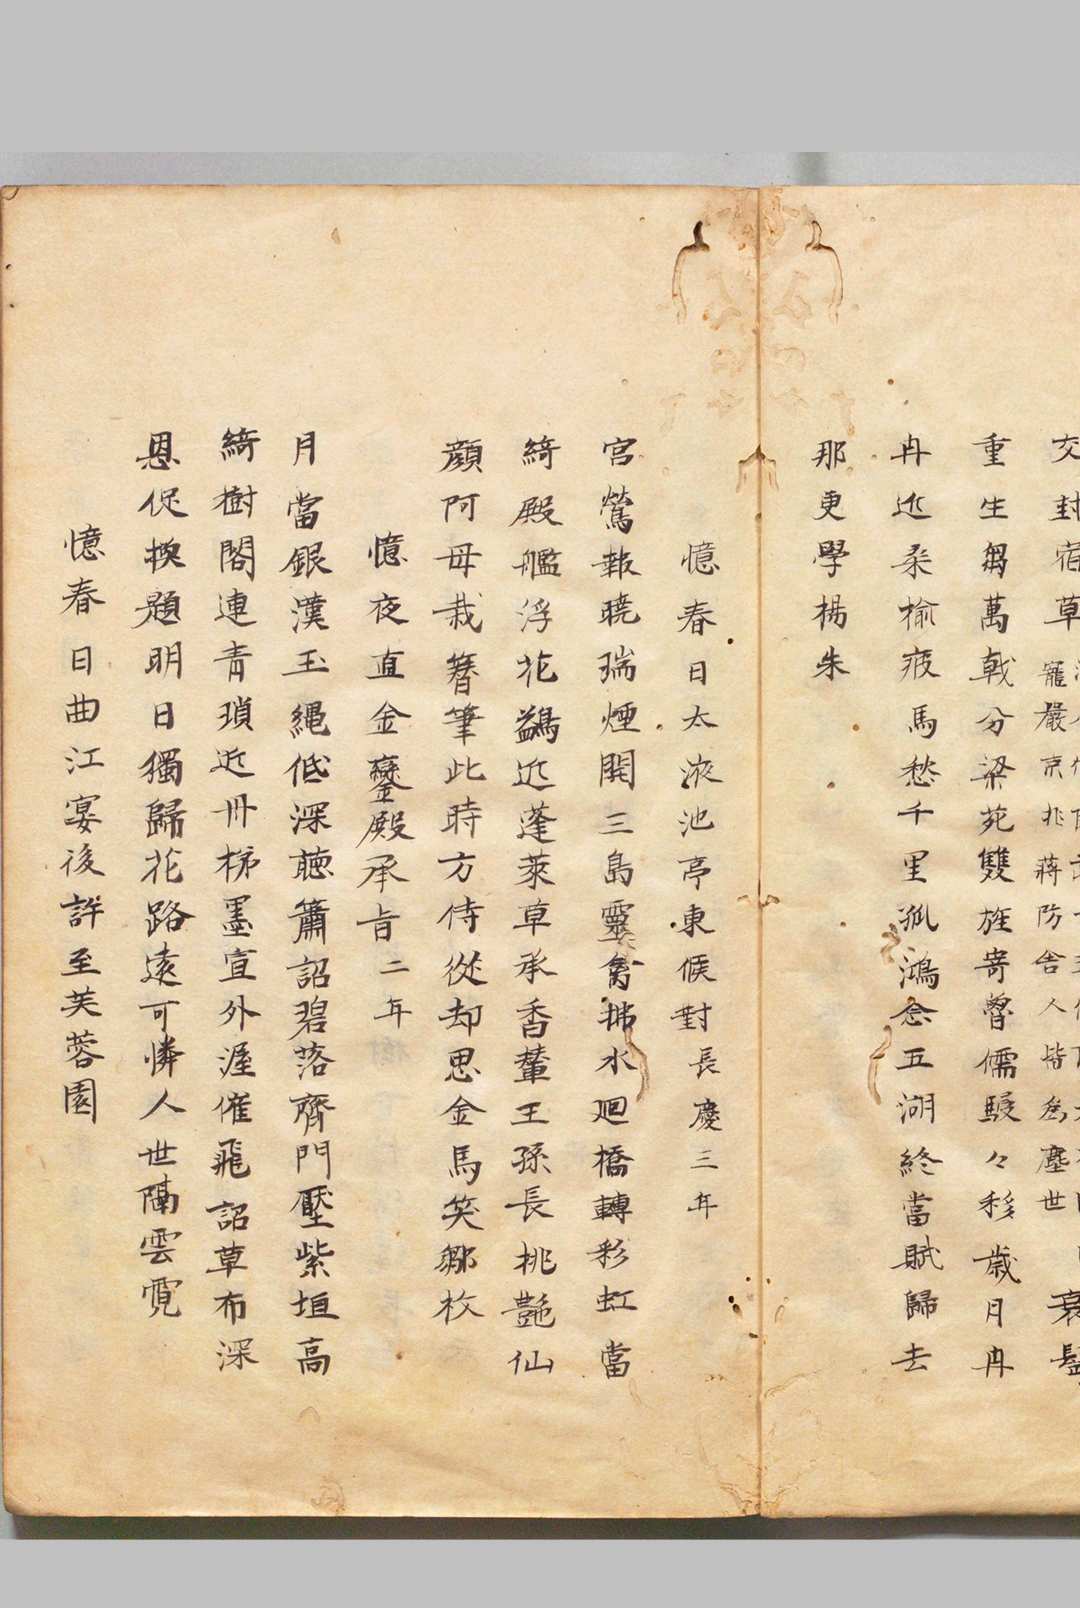 交封宿草 衰髩
寵嚴京兆蔣防舍人皆爲塵世
重生芻萬戟分梁苑雙旌寄魯儒駸々移歲月冉
冉迫桑榆疲馬愁千里孤鴻念五湖終當賦歸去
那更學楊朱
憶春日太液池亭東候對長慶三年
宮鶯報曉瑞煙開三島靈禽拂水廻橋轉彩虹當
綺殿艦浮花鷁近蓬萊草承香輦王孫長桃艷仙
顔阿母栽簪筆此時方侍從却思金馬笑鄒枚
憶夜直金鑾殿承旨二年
月當銀漢玉繩低深聽簫韶碧落齊門壓紫垣高
綺樹閣連青瑣近丹梯墨宣外渥催飛詔草布深
恩促換題明日獨歸花路遠可憐人世隔雲霓
憶春日曲江宴後許至芙蓉園